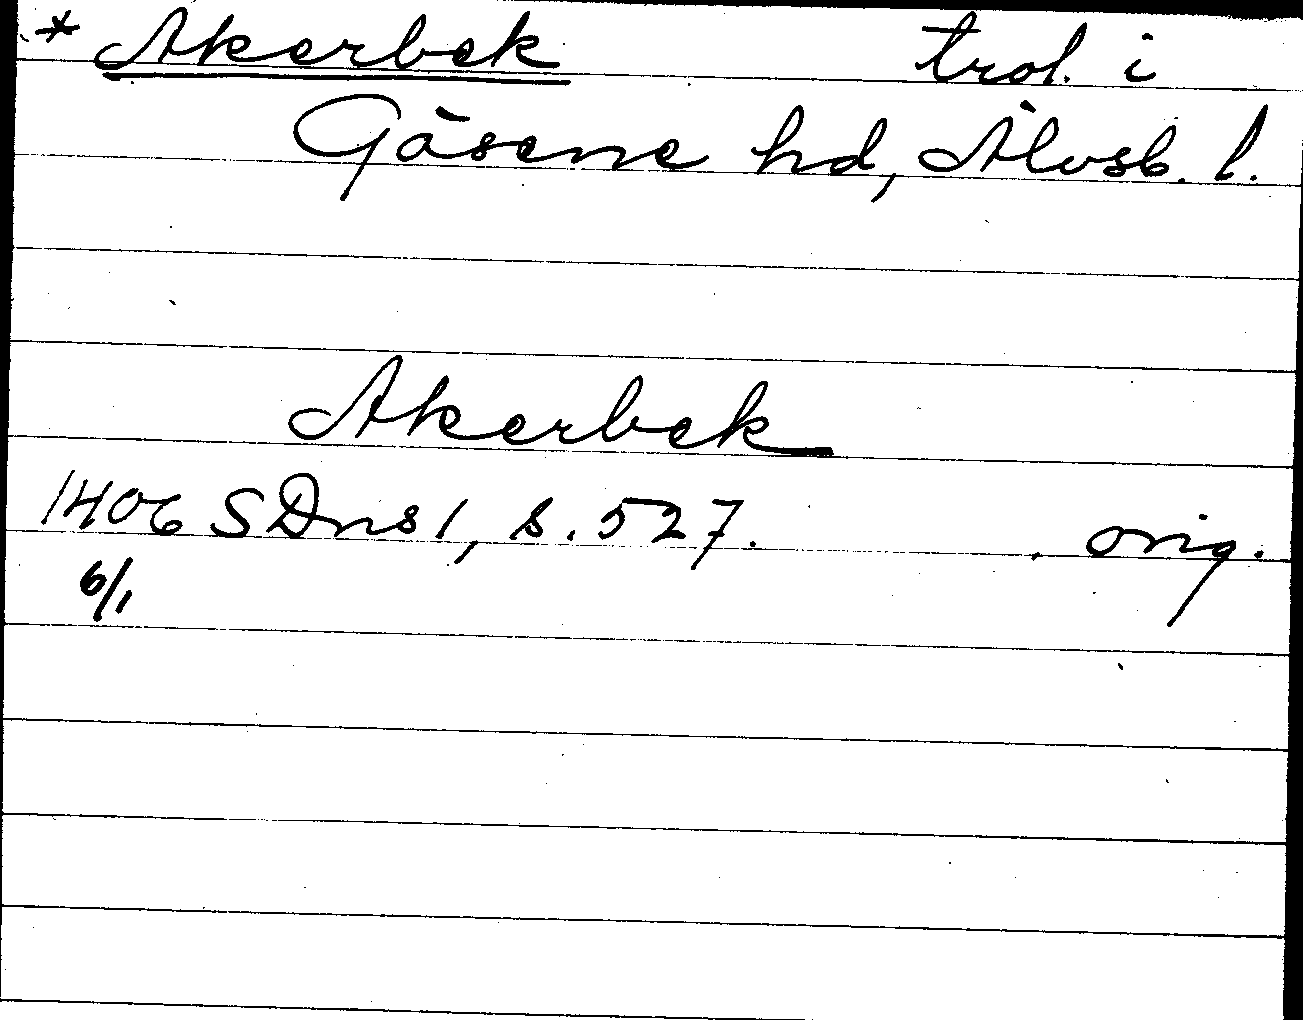 * Akerbek trol. i
Gäsene hd, Älvsb. l.
Akerbek
1406 SDns 1, s. 527. . orig.
6/1